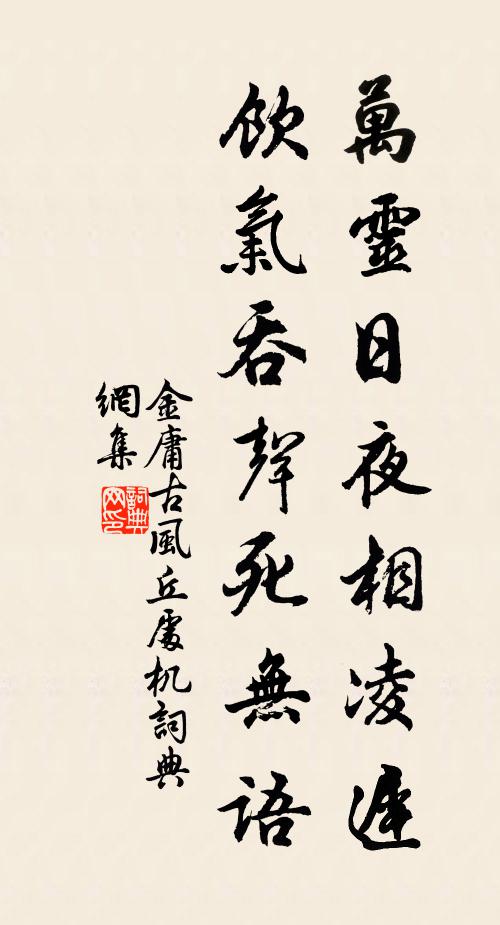 萬靈日夜相凌遲
飲氣吞聲死無語
金庸古風丘處机詞典
網集
詞典网印